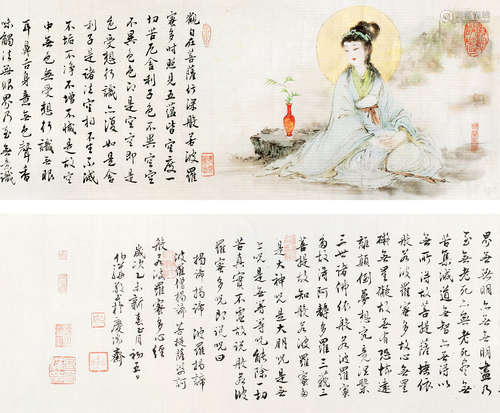 觀自在菩薩行深般若波羅
蜜多時照見五蘊皆空度一
切苦厄舍利子色不異空空
不異色色即是空空即是
色受想行識亦復如是舍
利子是諸法空相不生不滅
不垢不淨不增不減是故空
中無色無受想行識無眼
耳鼻舌身意無色聲香
味觸法無眼界乃至無意識
界無無明亦無無明盡乃
至無老死亦無老死盡無
苦集滅道無智亦無得以
無所得故菩提薩埵依
般若波羅蜜多故心無罣
礙無罣礙故無有恐怖遠
離顛倒夢想究竟涅槃
三世諸佛依般若波羅蜜
多故得阿耨多羅三藐三
菩提故知般若波羅蜜多
是大神咒是大明咒是無
上咒是無等等咒能除一切
苦真實不虛故說般若波
羅蜜多咒即說咒曰
揭諦揭諦 波羅揭諦
波羅僧揭諦 菩提薩婆訶
般若波羅蜜多心經
歲次乙未新春正月初五日